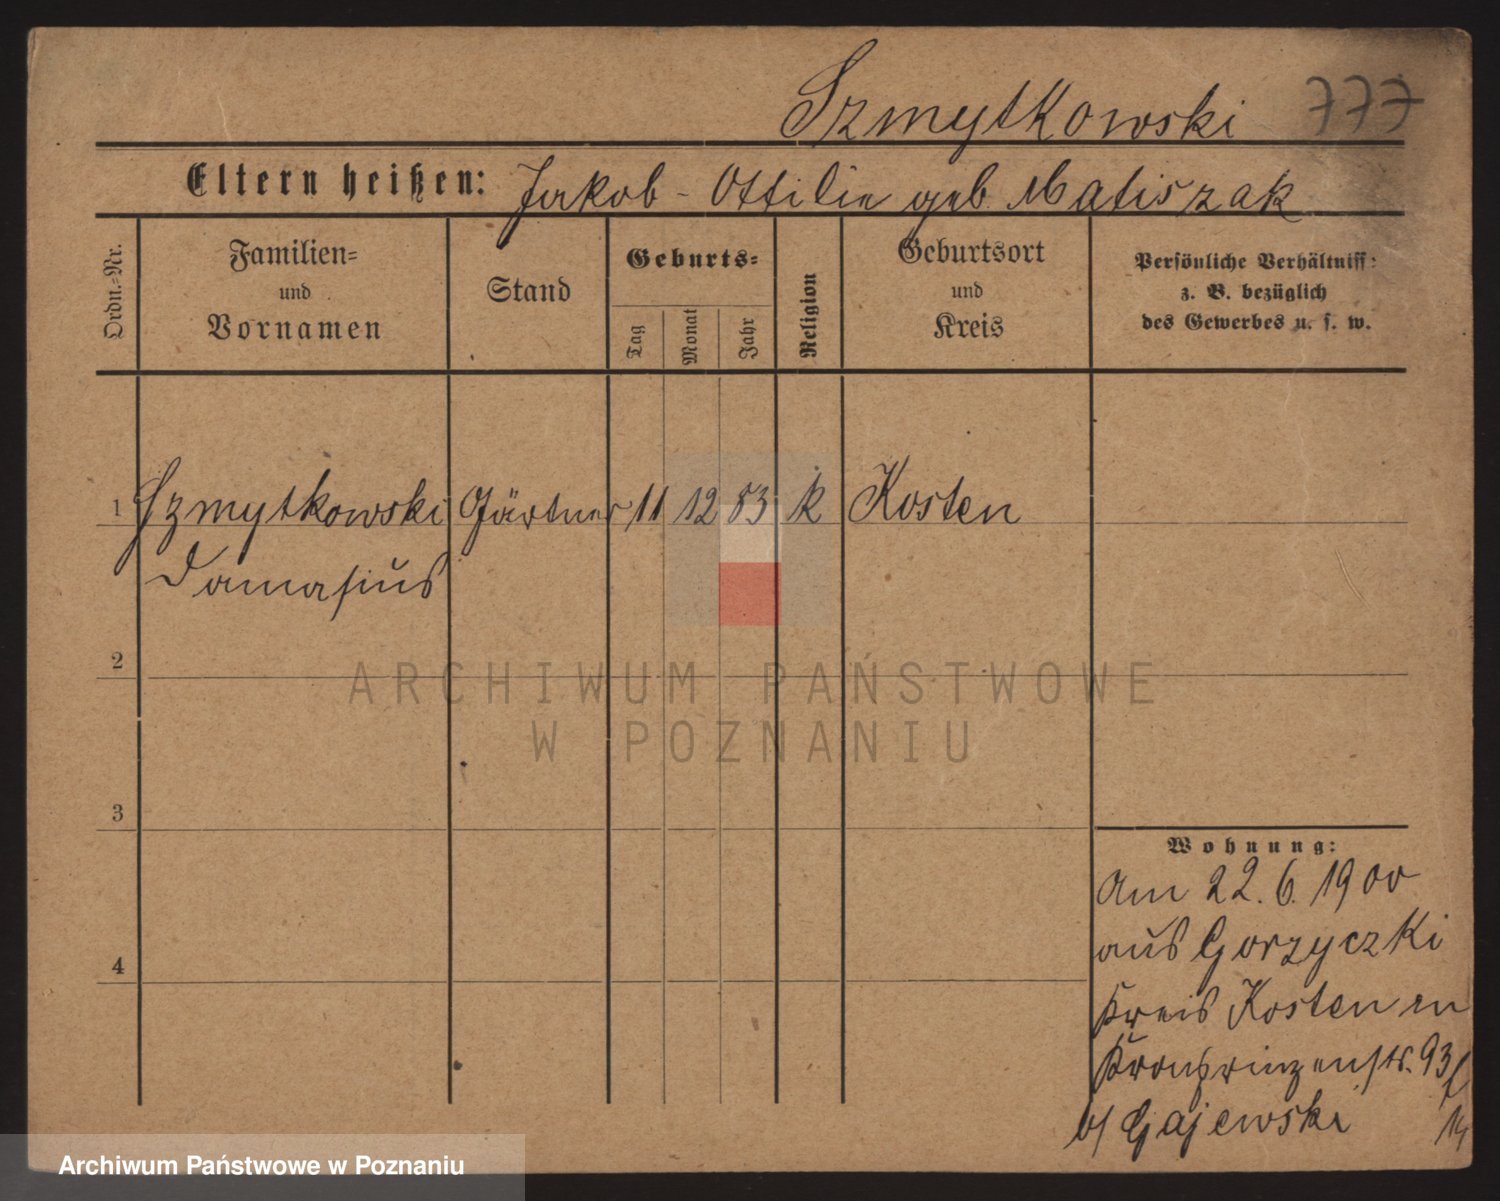 Szmytkowski 777
Eltern heißen: Jakob - Ottilie geb Matiszak
Ordn.-Nr.
Familien=
und
Vornamen
Stand
Geburts=
Tag
Monat
Jahr
Religion
Geburtsort
und
Kreis
Persönliche Verhältniss:
z. B. bezüglich
des Gewerbes u. s. w.
1 Szmytkowski Gärtner 11 12 83 k Kosten
Damasius
2
3
4
Wohnung:
Am 22. 6. 1900
aus Gorzyczki
Kreis Kosten in
Kronprinzenstr. 93
b/ Gajewski
ARCHIWUM PAŃSTWOWE
W POZNANIU
Archiwum Państwowe w Poznaniu